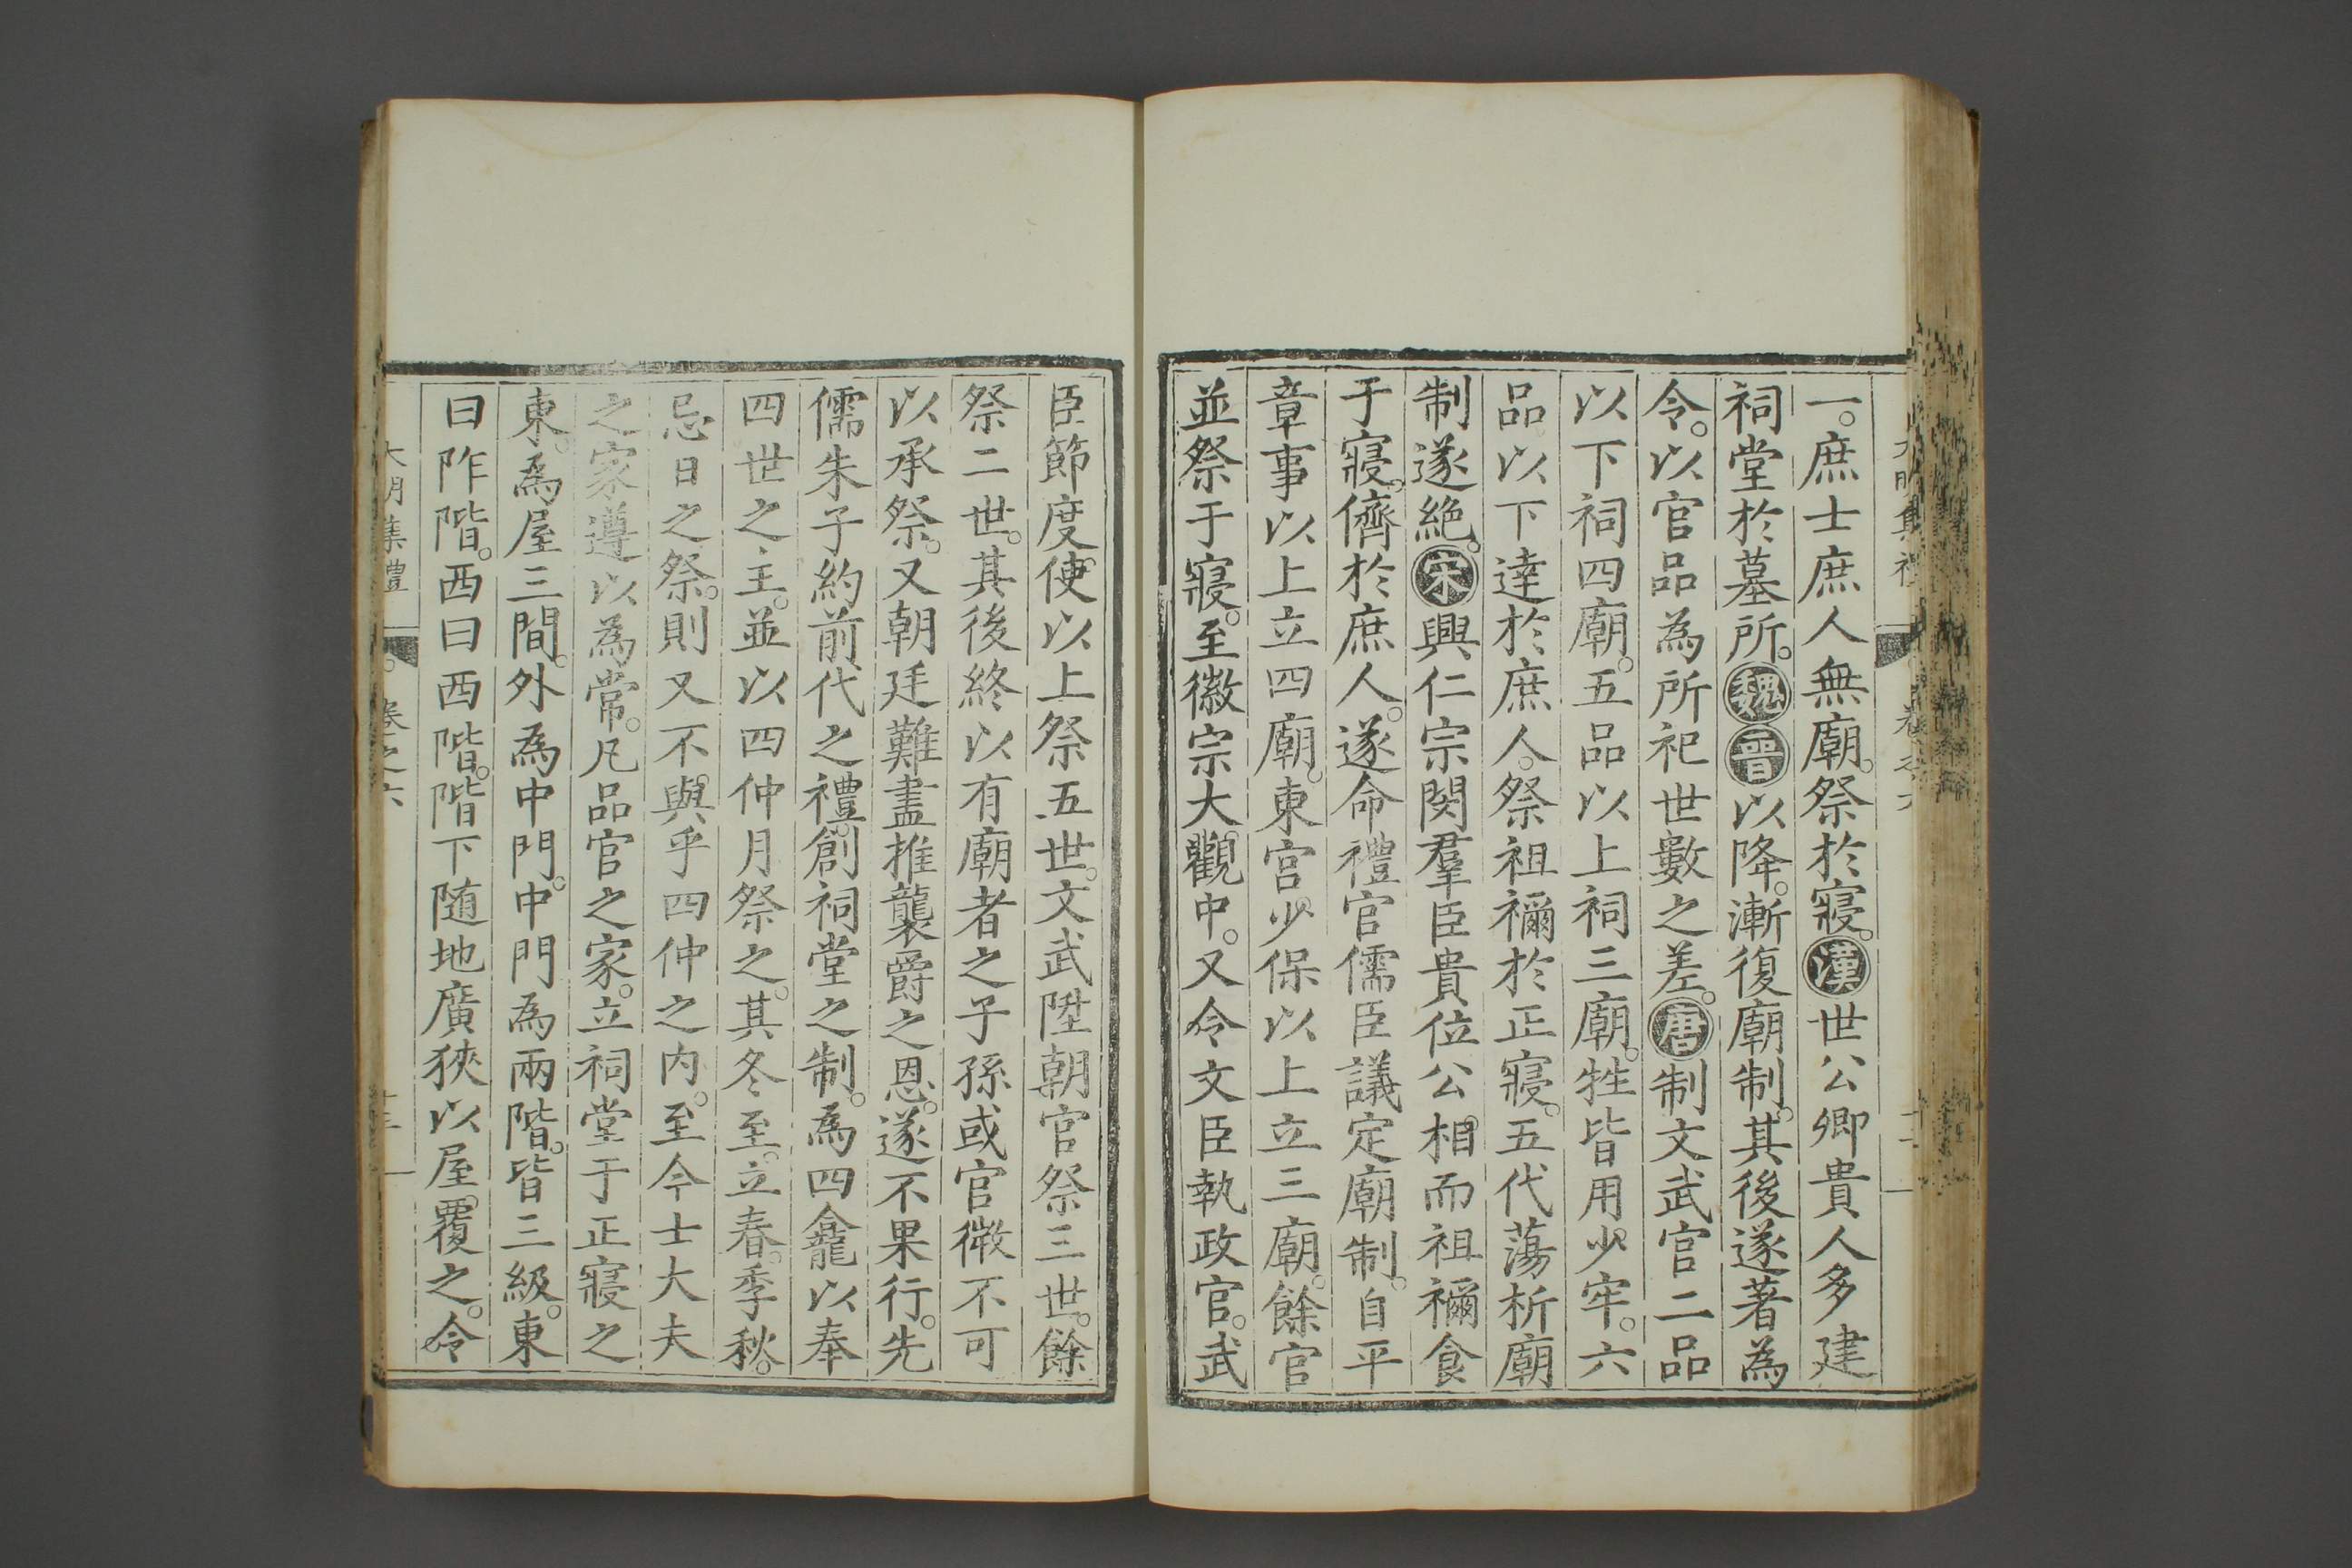 一。庶士庶人無廟。祭於寢。漢世公卿貴人多建
祠堂於墓所。魏晉以降。漸復廟制。其後遂著為
令。以官品為所祀世數之差。唐制文武官二品
以下祠四廟。五品以上祠三廟。牲皆用少牢。六
品以下達於庶人。祭祖禰於正寢。五代蕩析廟
制遂絶。宋興仁宗閔羣臣貴位公相。而祖禰食
于寢。儕於庶人。遂命禮官儒臣議定廟制。自平
章事以上立四廟。東宮少保以上立三廟。餘官
並祭于寢。至徽宗大觀中。又令文臣執政官。武
臣節度使以上祭五世。文武陞朝官祭三世。餘
祭二世。其後終以有廟者之子孫或官微不可
以承祭。又朝廷難盡推襲爵之恩。遂不果行。先
儒朱子約前代之禮。創祠堂之制。為四龕以奉
四世之主。並以四仲月祭之。其冬至。立春。季秋。
忌日之祭。則又不與乎四仲之内。至今士大夫
之家遵以為常。凡品官之家。立祠堂于正寢之
東。為屋三間。外為中門。中門為兩階。皆三級。東
曰阼階。西曰西階。階下随地廣狹以屋覆之。令
大明集禮 卷之六